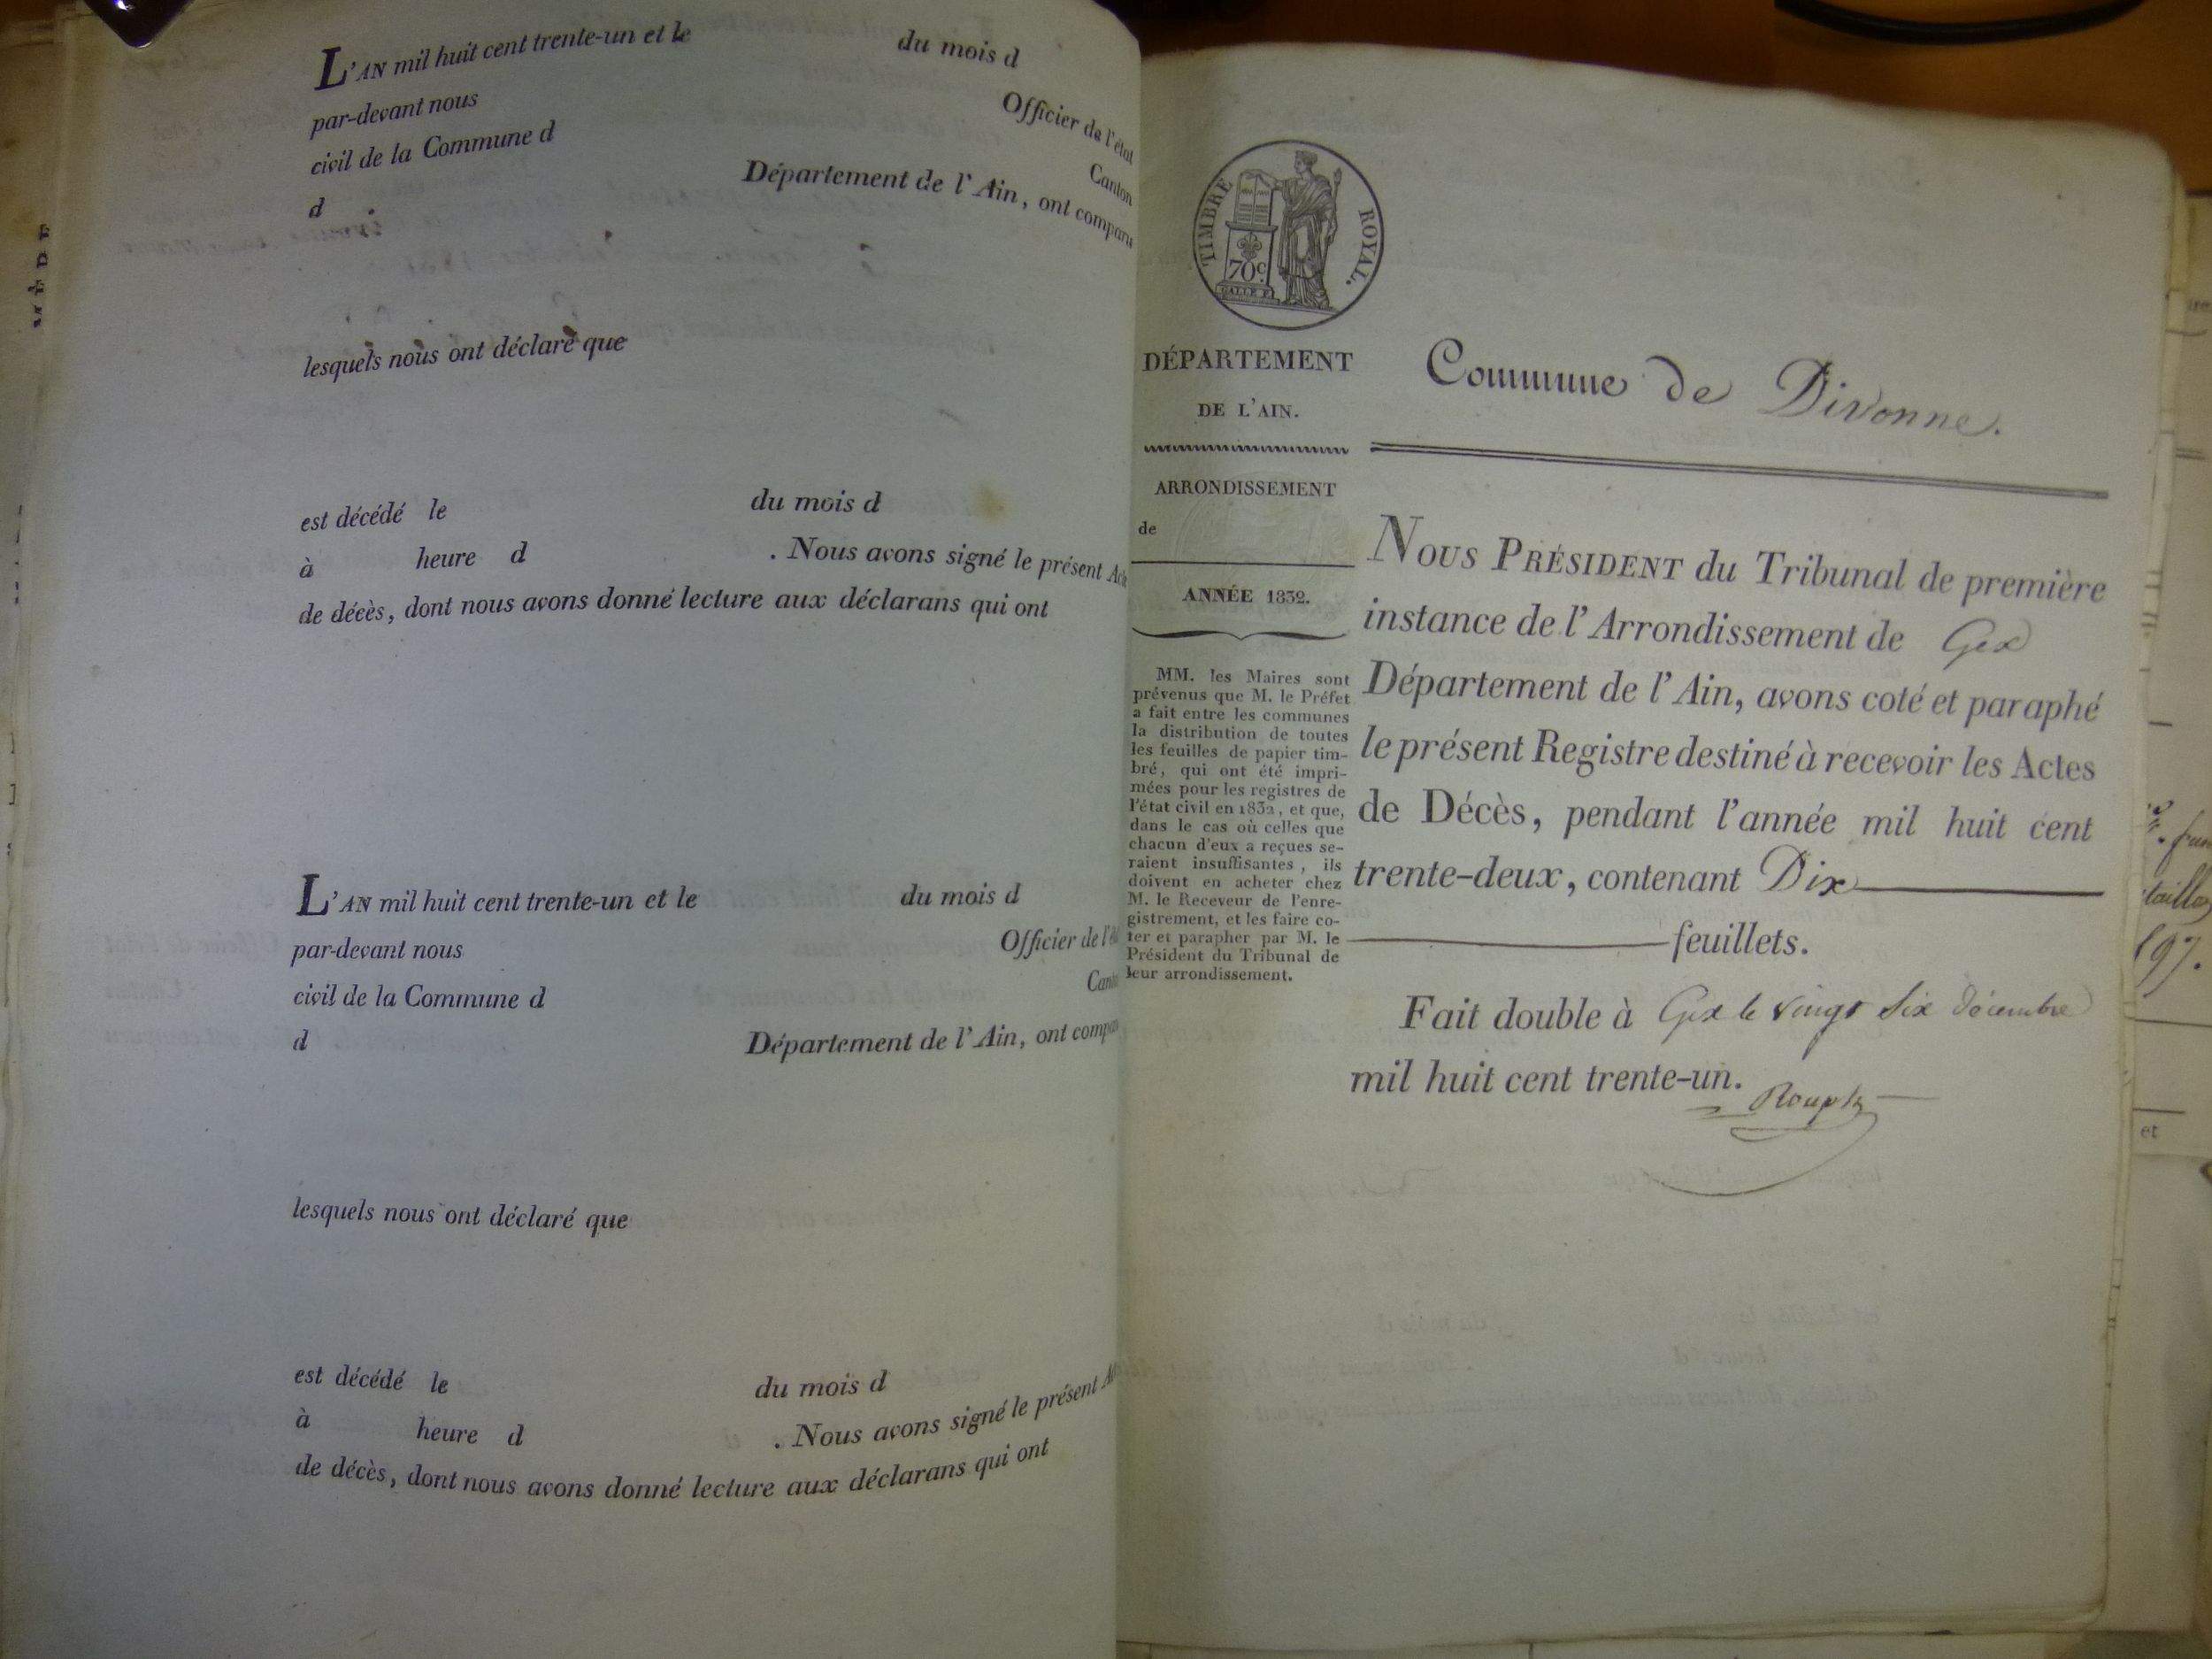 L'AN mil huit cent trente-un et le du mois d
par-devant nous Officier de l'état
civil de la Commune d Canton
d Département de l'Ain, ont comparu
lesquels nous ont déclaré que
est décédé le du mois d
à heure d . Nous avons signé le présent Acte
de décès, dont nous avons donné lecture aux déclarans qui ont
L'AN mil huit cent trente-un et le du mois d
par-devant nous Officier de l'ét
civil de la Commune d Cant
d Département de l'Ain, ont compar
lesquels nous ont déclaré que
est décédé le du mois d
à heure d . Nous avons signé le présent A
de décès, dont nous avons donné lecture aux déclarans qui ont
TIMBRE ROYAL.
70c
GALLE F
DÉPARTEMENT
DE L'AIN.
ARRONDISSEMENT
de
ANNÉE 1832.
MM. les Maires sont
prévenus que M. le Préfet
a fait entre les communes
la distribution de toutes
les feuilles de papier tim-
bré, qui ont été impri-
mées pour les registres de
l'état civil en 1832, et que,
dans le cas où celles que
chacun d'eux a reçues se-
raient insuffisantes, ils
doivent en acheter chez
M. le Receveur de l'enre-
gistrement, et les faire co-
ter et parapher par M. le
Président du Tribunal de
leur arrondissement.
Commune de Divonne.
NOUS PRÉSIDENT du Tribunal de première
instance de l'Arrondissement de Gex
Département de l'Ain, avons coté et paraphé
le présent Registre destiné à recevoir les Actes
de Décès, pendant l'année mil huit cent
trente-deux, contenant Dix
feuillets.
Fait double à Gex le vingt six décembre
mil huit cent trente-un.
197.
et